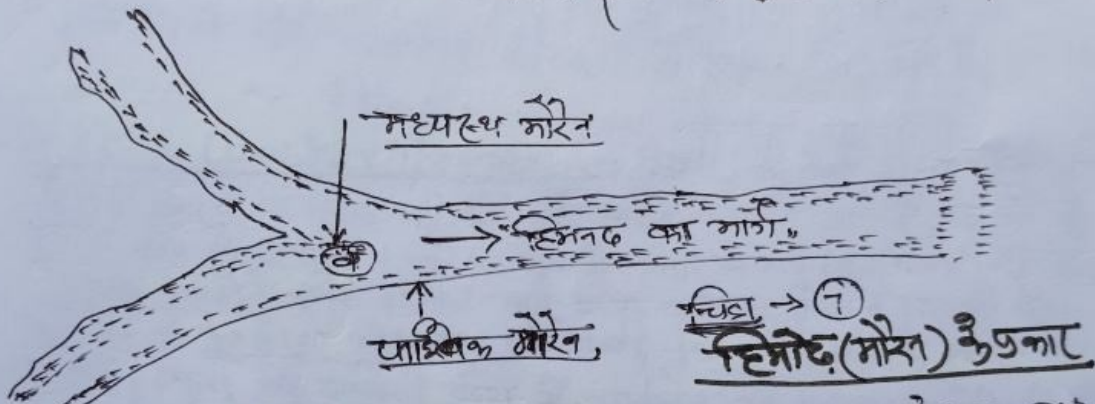 मध्यस्थ मौरेन
क
हिमनद का मार्ग
पार्श्विक मौरेन,
चित्र → 7
हिमोढ़ (मौरेन) के प्रकार